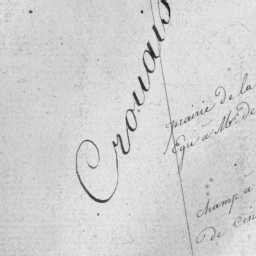 Crouais
prairie de la
Equ a Mr de
champ a
de cin